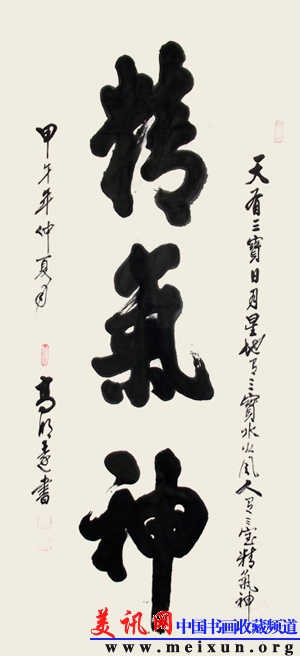 天有三寶日月星地有三寶水火風人有三宝精氣神
精氣神
甲午年仲夏月
高明遠書
美讯网 中国书画收藏频道
www.meixun.org